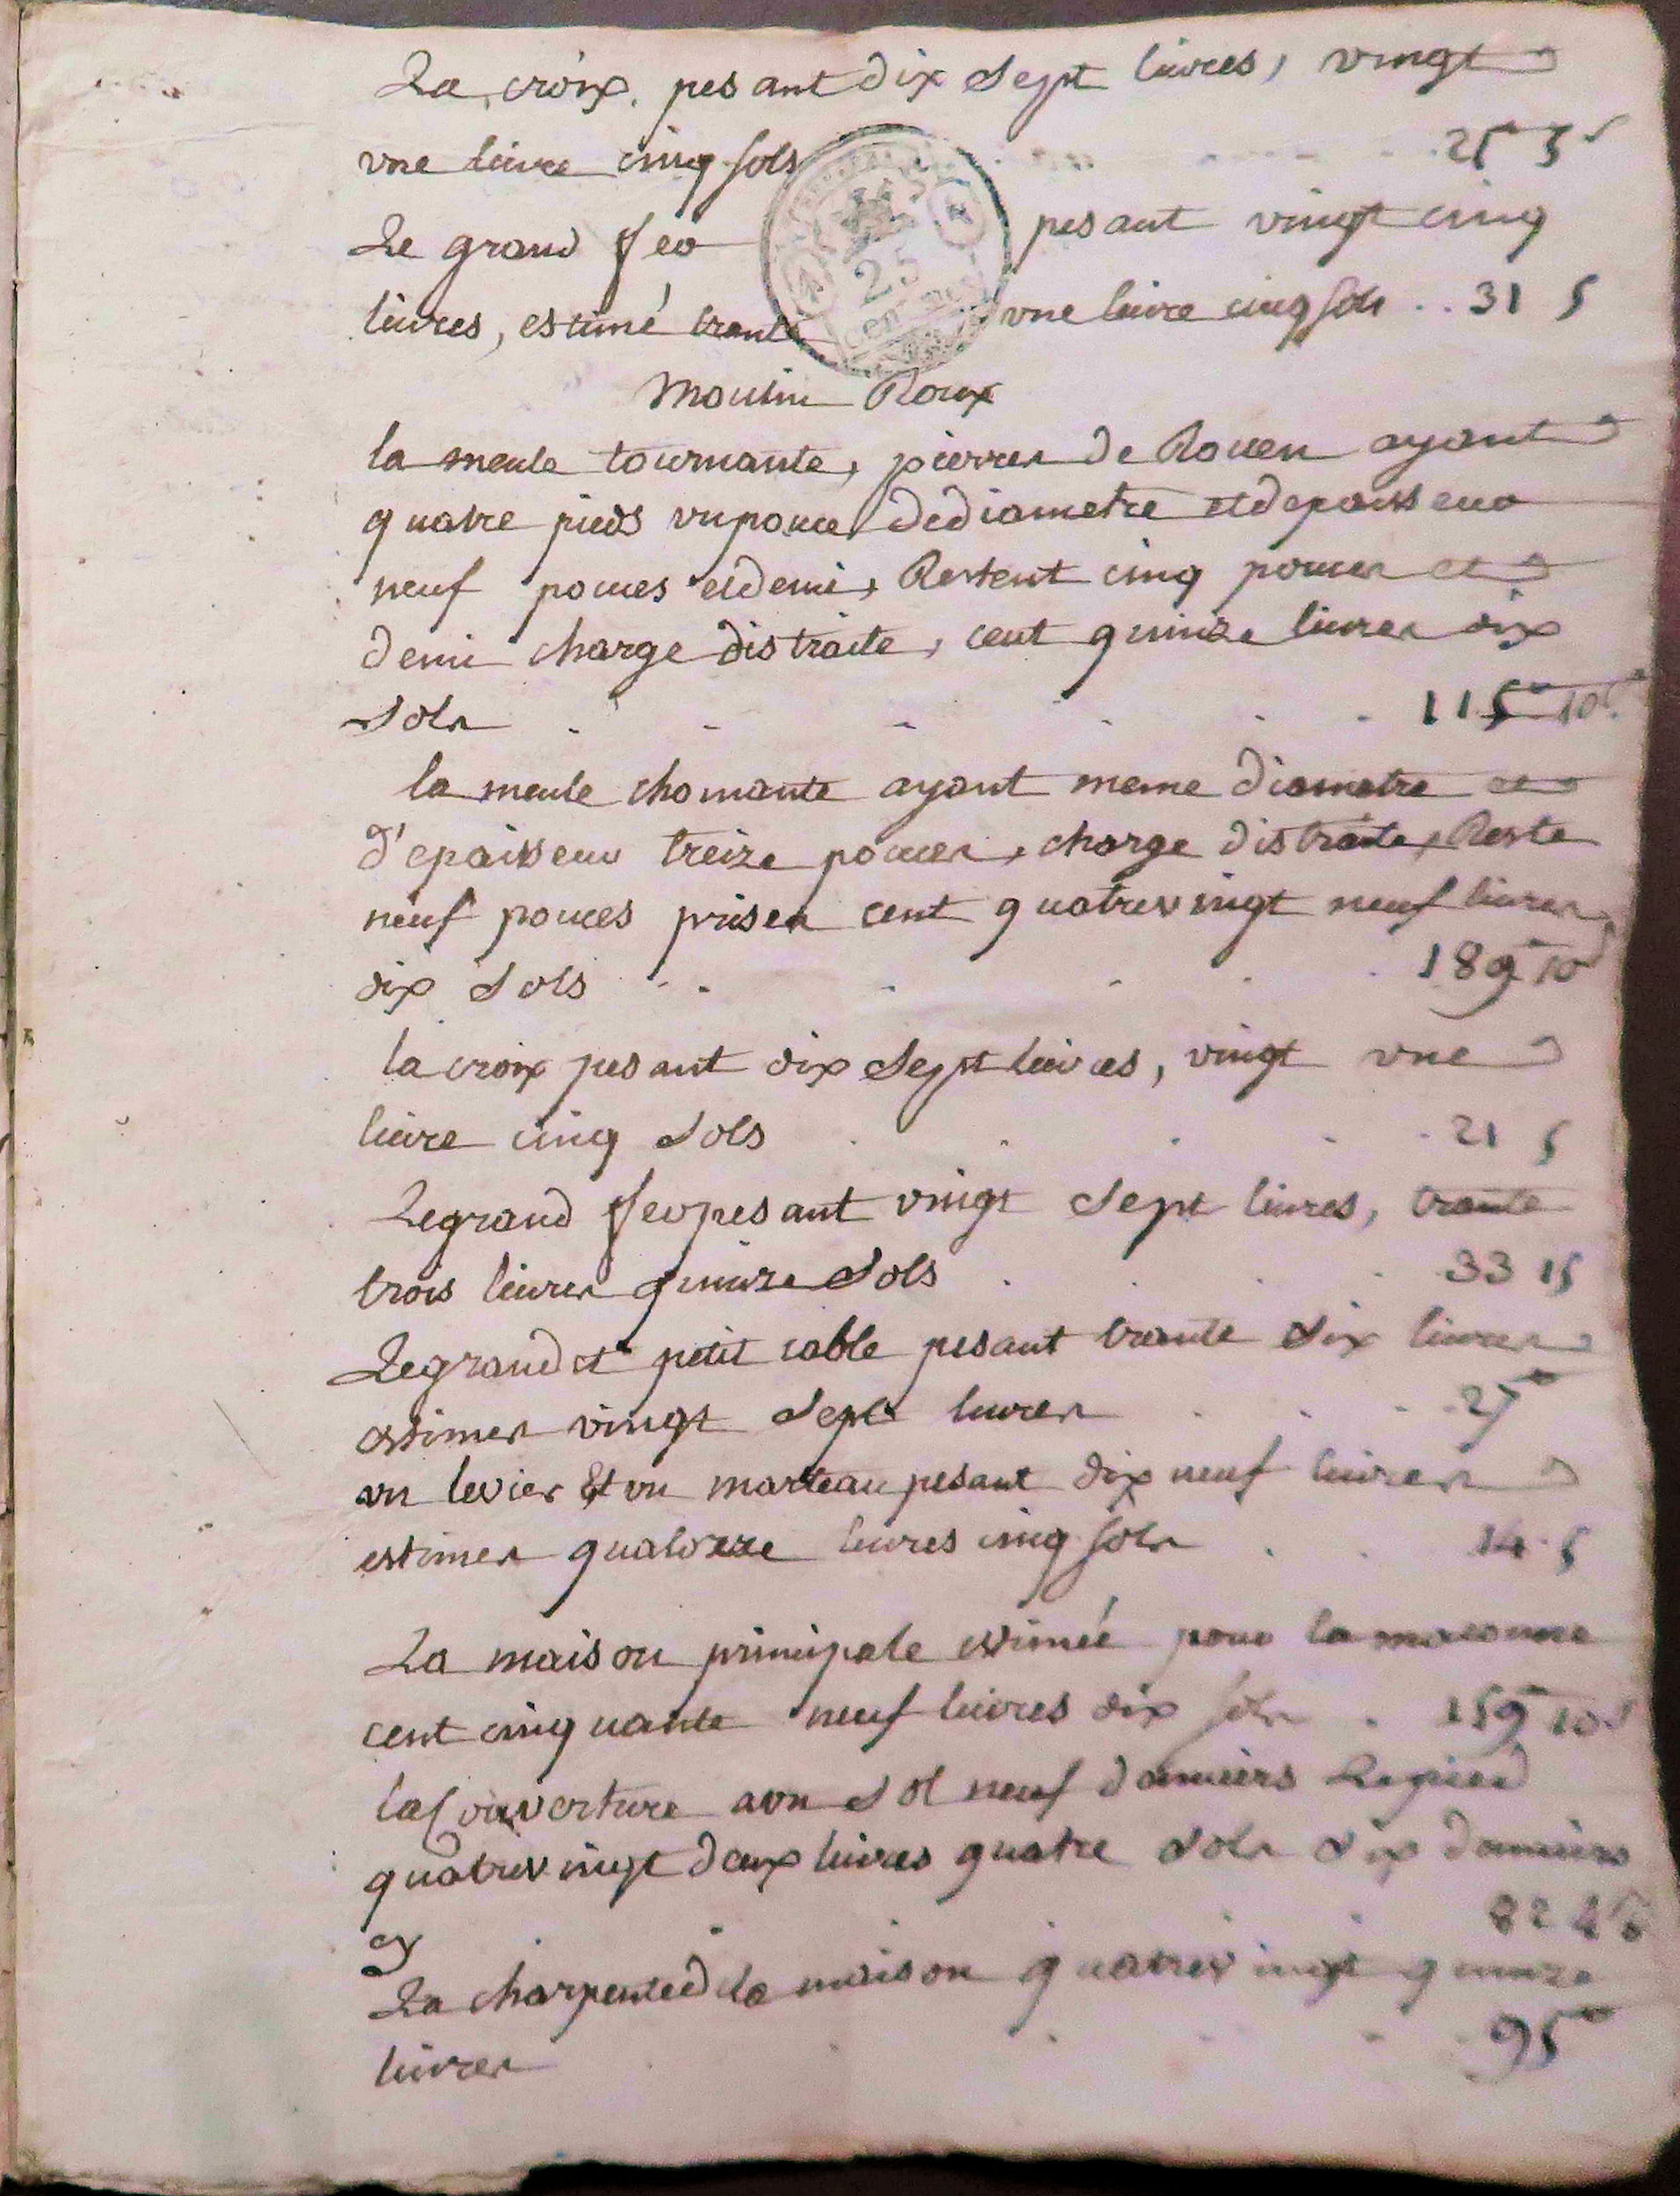 La croix pesant dix sept livres, vingt
une livre cinq sols . . . 21 5 s
Le grand fer pesant vingt cinq
livres, estimé trante une livre cinq sols .. 31 5
25
cen
Moulin Roux
la meule tournante, pierres de Rouen ayant
quatre pieds un pouce de diametre et depaisseur
neuf pouces et demi, Restent cinq pouces et
demi charge distraite, cent quinze livres dix
sols . . . . . . 115 10 s
la meule chomante ayant meme diametre et
d'epaisseur treize pouces, charge distraite, Reste
neuf pouces prisée cent quatrevingt neuf livres
dix sols . . . . . 189 10 s
la croix pesant dix sept livres, vingt une
livre cinq sols . . . . . 21 5
Le grand fer pesant vingt sept livres, trante
trois livres quinze sols . . . . 33 15
Le grand et petit cable pesant trante six livres
estimes vingt sept livres . . . 27
un levier Et un marteau pesant dix neuf livres
estimes quatorze livres cinq sols . . 14 5
La maison principale estimée pour la maconne
cent cinquante neuf livres dix sols . 159 10 s
la Couverture a un sol neuf deniers Le pied
quatrevingt deux livres quatre sols six deniers
cy . . . . . 82 4 6
La charpente de la maison quatrevingt quinze
livres . . . . . 95